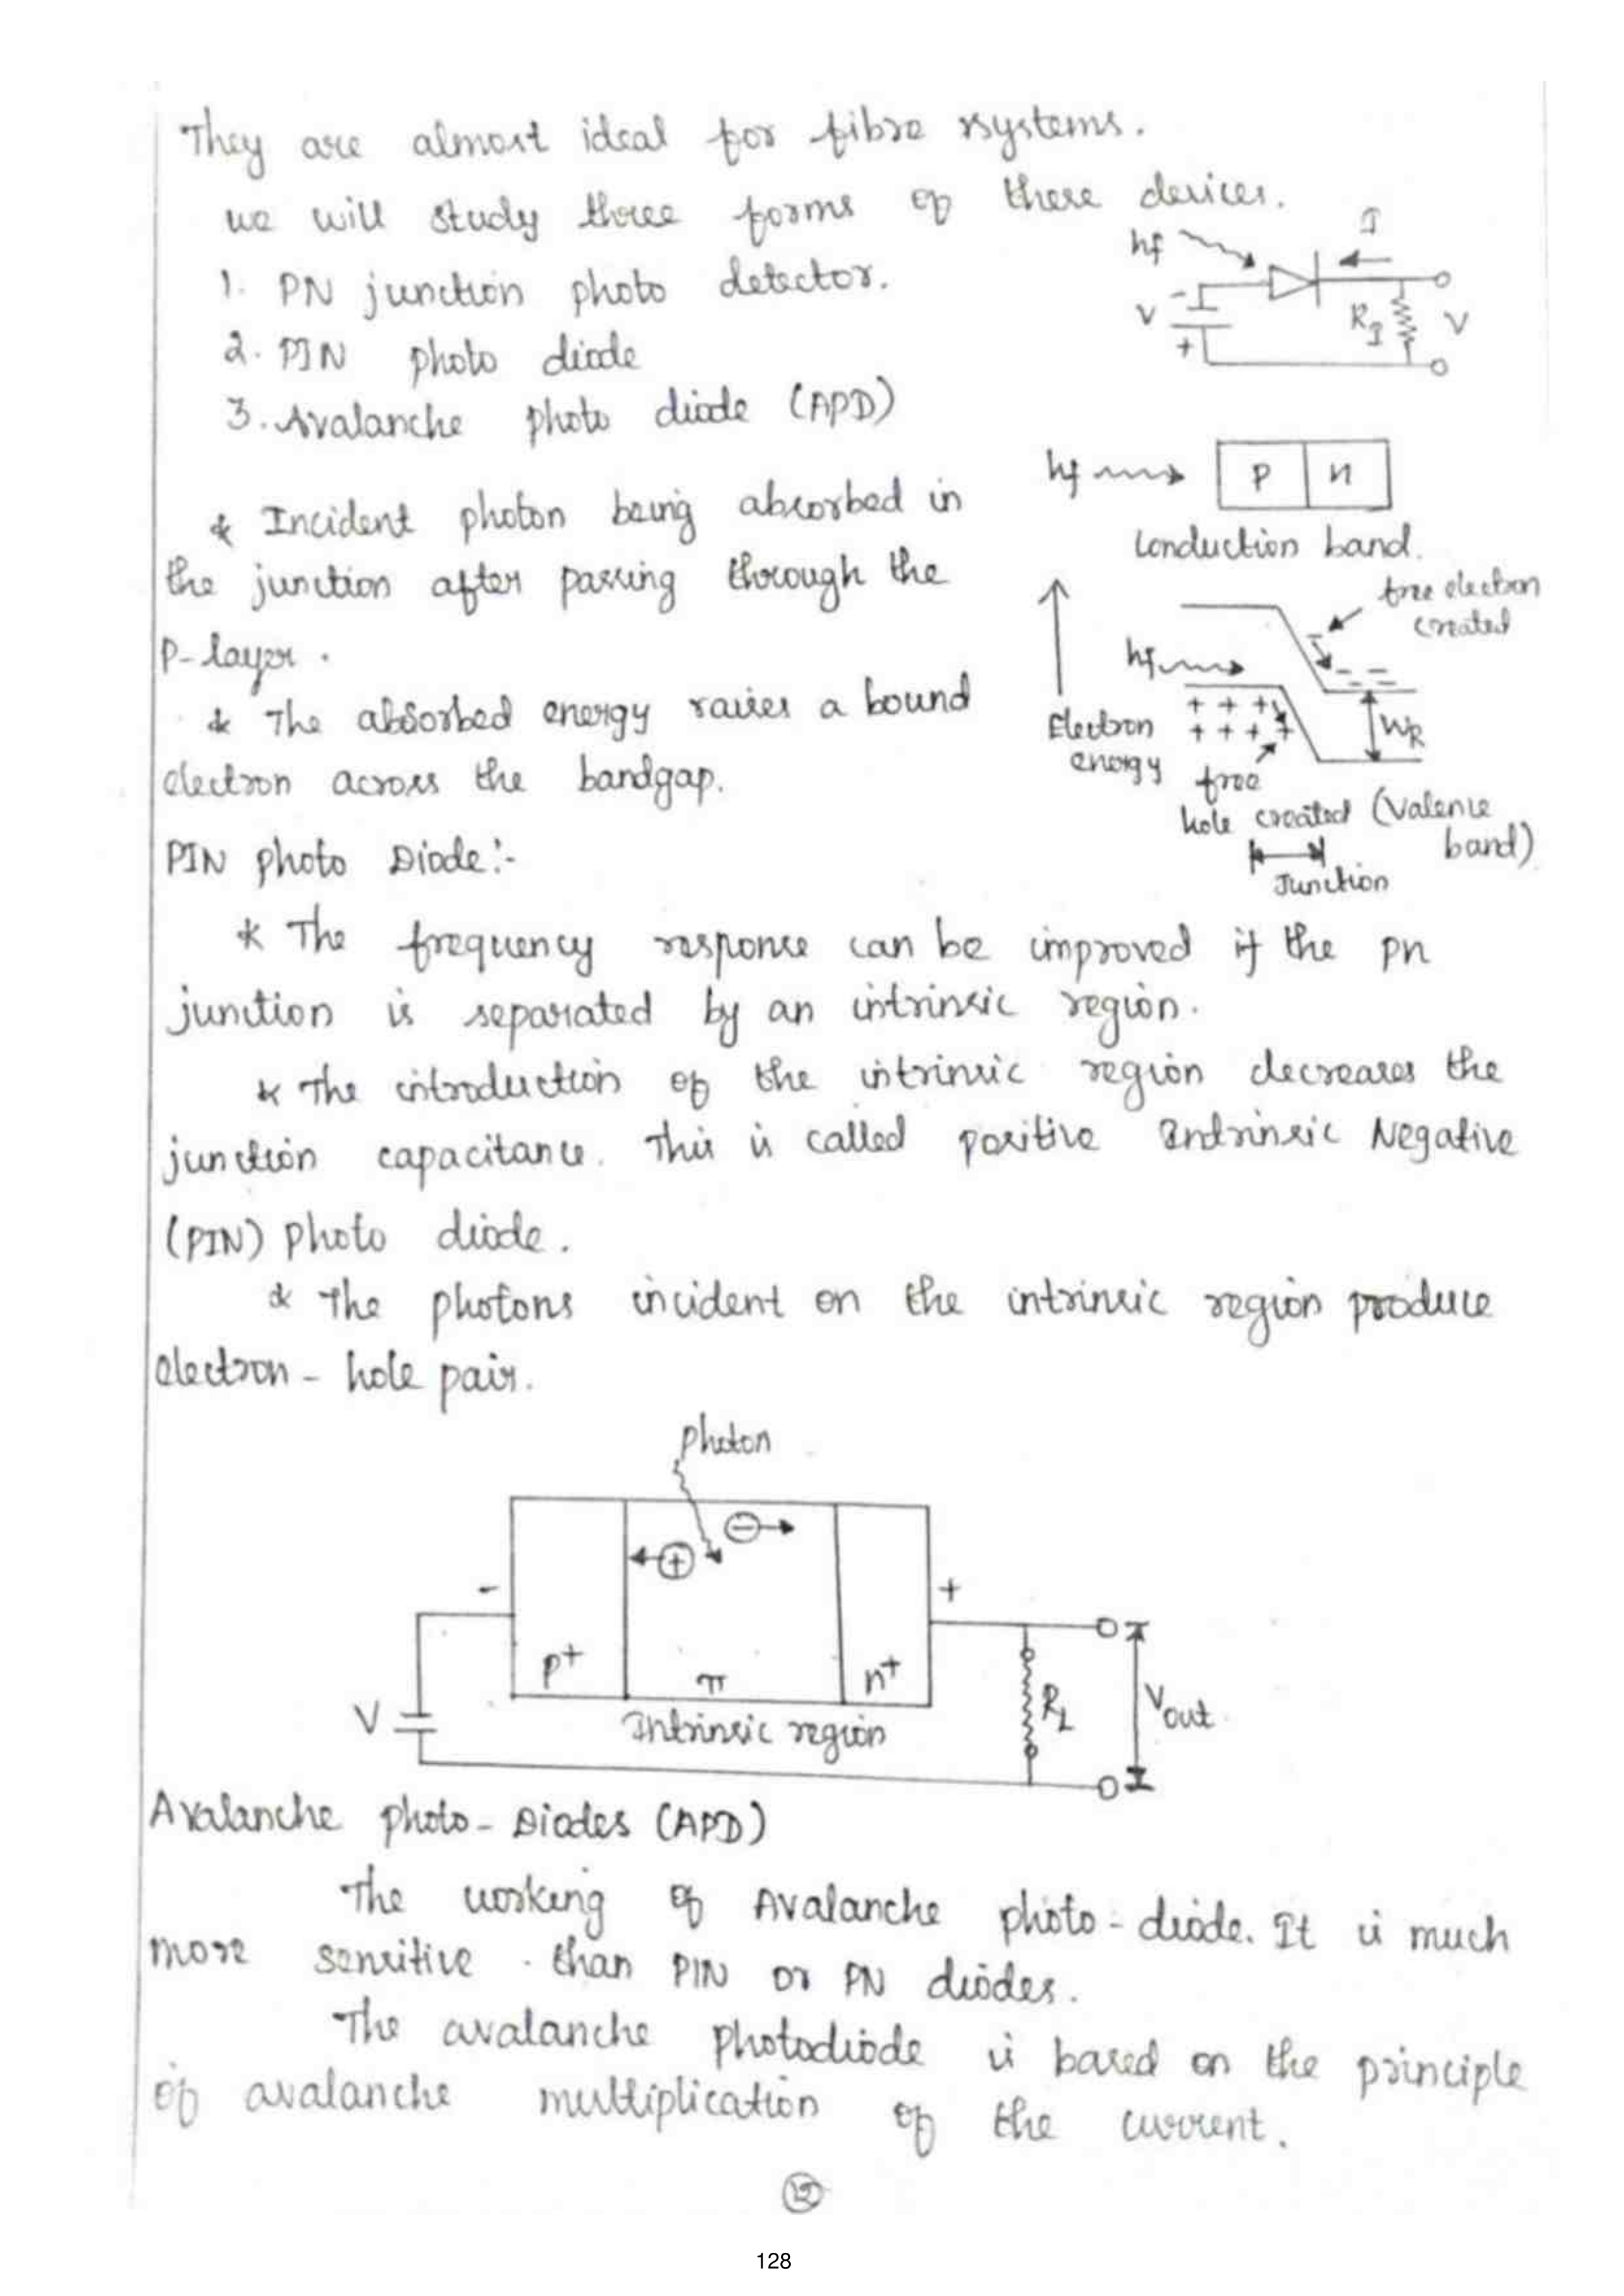 They are almost ideal for fibre systems.
we will study three forms of these devices.
1. PN junction photo detector.
2. PIN photo diode
3. Avalanche photo diode (APD)
hf
I
V
-
+
V
hf
P
n
Conduction band.
* Incident photon being absorbed in
the junction after passing through the
P-layer.
* The absorbed energy raises a bound
electron across the bandgap.
free electron
created
hf
- - -
+ + +
+ + + +
Electron
energy
free
hole created (Valence
band)
Junction
PIN photo Diode:-
* The frequency response can be improved if the pn
junction is separated by an intrinsic region.
* The introduction of the intrinsic region decreases the
junction capacitance. This is called positive Intrinsic Negative
(PIN) photo diode.
* The photons incident on the intrinsic region produce
electron - hole pair.
photon
-
+
P+
π
n+
V
Intrinsic region
RL
Vout
Avalanche photo - Diodes (APD)
The working of Avalanche photo - diode. It is much
more sensitive than PIN or PN diodes.
The avalanche photodiode is based on the principle
of avalanche multiplication of the current.
128